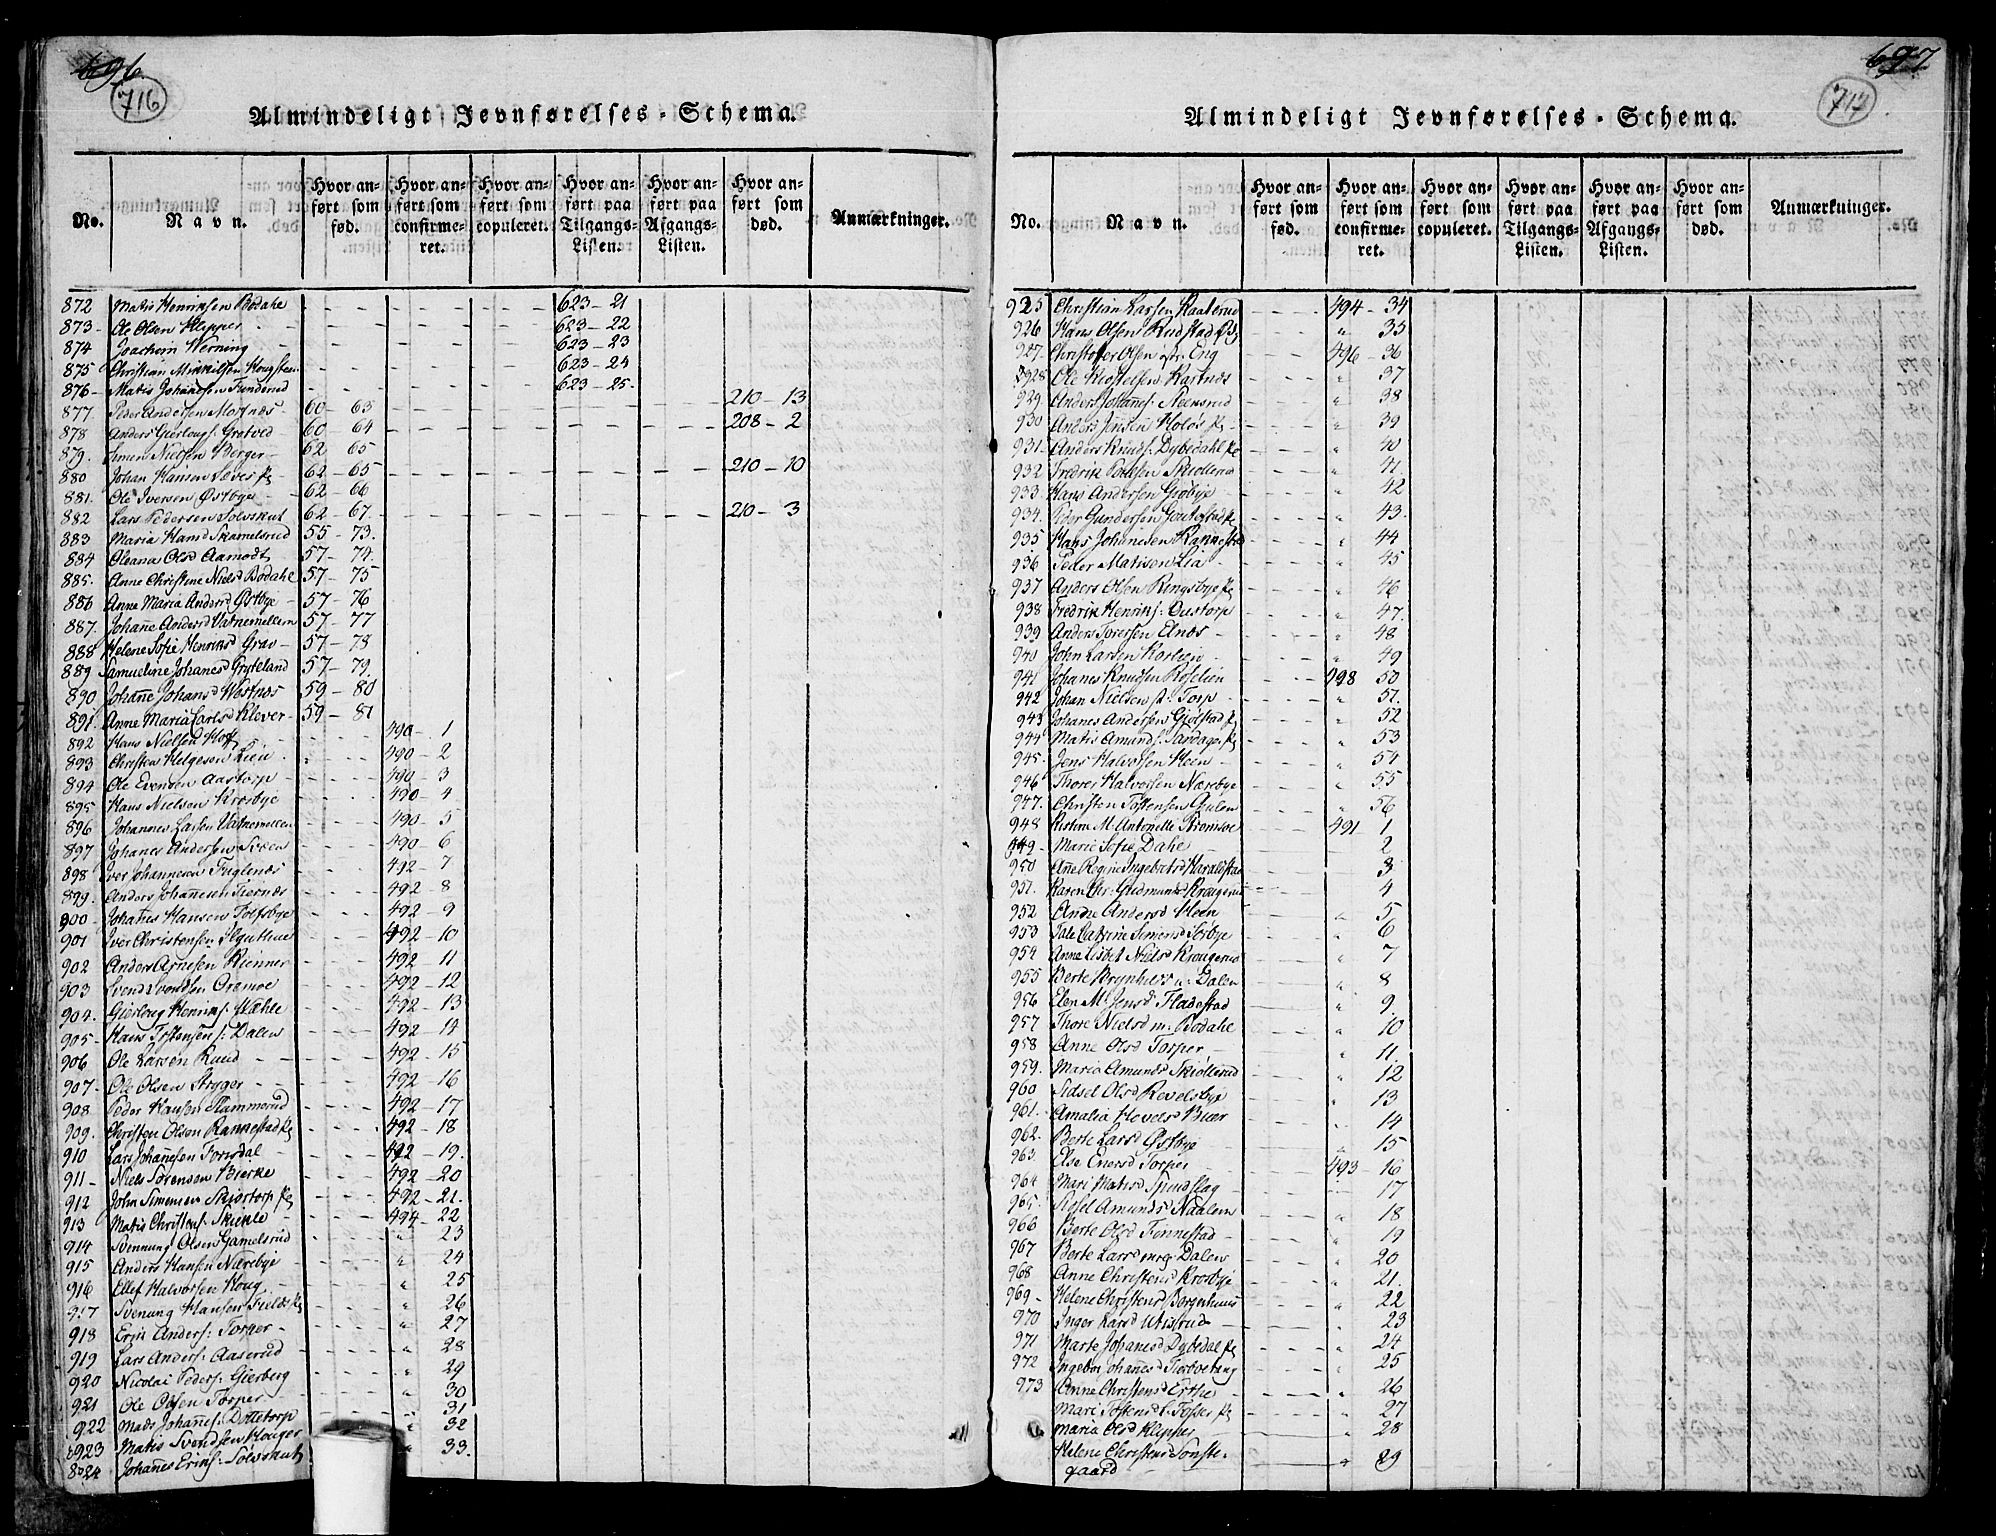 696.
716
Almindeligt Jevnførelses-Schema.
No.
Navn.
Hvor anført som fød.
Hvor anført som confirmeret.
Hvor anført som copuleret.
Hvor anført paa Tilgangs-Listen.
Hvor anført paa Afgangs-Listen.
Hvor anført som død.
Anmærkninger.
872 Matis Henriksen Bodahl 623-21
873- Ole Olsen Klepper 623-22
874 Joachim Werning 623-23
875 Christian Mikkelsen Hougsteen 623-24
876- Matis Johansen Funderud 623-25
877 Peder Andersen Mostnæs 60-63 210-13
878 Anders Gierlougs: Grotved 60 64 208-2
879. Simen Nielsen Berger 62 65
880 Johan Hansen 62-65 210-10
881. Ole Iversen Østbye 62-66
882 Lars Pedersen Solvskut 62-67. 210-3
883 Maria Hansd Skamelsrud 55-73.
884 Oleana Olsd Aamodt 57-74
885. Anne Christine Nielsd Bodahl 57-75
886 Anne Maria Andersd Østbye 57-76
887. Johañe Andersd Vatnemellem 57-77
888 Helene Sofie Henriksd Grav 57-78
889 Samueline Johanesd Gryteland 57-79
890 Johañe Johansd Westnæs 59-80
891. Anne Maria Carlsd Klover 59-81
892 Hans Nielsen Hoff 490-1
893 Christen Helgesen Lien 490-2
894 Ole Evensen Aastorp 490-3
895 Hans Nielsen Krosbye 490-4
896 Johannes Larsen Vatnemellem 490-5
897 Johanes Andersen Sveen 490-6
898 Iver Johannesen Fuglenæs 492-7
899. Anders Johañesen Tiernæs 492-8
900 Johañes Hansen Tolfsbye 492-9
901 Iver Christensen 492-10
902 Anders Arnesen Rienner 492-11
903 Svend Svendsen Oremoe 492-12
904. Gierloug Henriks: Mæhle 492-13
905- Hans Tostensen s: Dalen 492-14
906 Ole Larsen Ruud 492-15
907- Ole Olsen Stryger 492-16
908. Peder Hansen Flammerud 492-17
909. Christen Olsen Rannestad 492-18
910 Lars Johañesen Torsdal 492-19.
911- Niels Sorensen Bierke 492-20
912 John Simensen Skiostorp 492-21.
913 Matis Christens: Skiehle 494-22
914 Svennung Olsen Gamelsrud " 23
915 Anders Hansen Nærebye " 24
916 Ellef Halvorsen Houg " 25
917 Svenung Hansen " 26
918 Erik Anders: Torper " 27
919 Lars Anders: Aaserud 28
920 Nicolai Peders: Gierberg " 29
921 Ole Olsen Torper 30
922 Mads Johañes: Dottetorp 31
32
923 Matis Svendsen Houger
33.
924 Johañes Eriks: Solvskut

697
717
Almindeligt Jevnførelses-Schema.
No.
Navn.
Hvor anført som fød.
Hvor anført som confirmeret.
Hvor anført som copuleret.
Hvor anført paa Tilgangs-Listen.
Hvor anført paa Afgangs-Listen.
Hvor anført som død.
Anmærkninger.
925 Christian Larsen Kaaterud 494-34
926 Hans Olsen Rudstad " 35
927. Christoffer Olsen østr: Eng 496-36
928 Ole Kiostelsen Kastnæs " 37
929 Anders Johanes: Steensrud " 38
930 Anders Jensen Holøs " 39
931. Anders Knuds: Dybedahl " 40
932 Fredrik Poulsen Skiollerud " 41
933 Hans Andersen Grobye " 42
934. Peder Gundersen " 43.
935 Hans Johanesen Rannestad " 44
936 Peder Matisen Lia " 45
937 Anders Olsen Ringsbye " 46
938 Fredrik Henriks: Oustorp " 47.
939 Anders Torersen Elnæs " 48
940 John Larsen Korlien " 49
941 Johanes Knudsen Roselien 498 50
942 Johan Nielsen st: Torp " 51.
943 Johanes Andersen Giølstad " 52
944 Matis Amunds: Sardager " 53
945. Jens Halvorsen Heen " 54
946 Thores Halvorsen Nærebye " 55
947. Christen Tostensen Gulen " 56
948 Kistine M. Antonette Stromsoe 491-1
949- Marie Sofie Dahl 2
950 Añe Regine Ingebretsd Haraldstad 3
951. Karen Chr: Gudmundsd Krougerud 4
952 Añne Andersd Heen " 5
953 Tale Catrine Simensd Torbye " 6
954 Anne Lisbet Nielsd Krougerud " 7
955 Berte Brynhilds n: Dalen " 8
956 Elen M. Jensd Fladestad " 9.
957 Thore Nielsd m: Bodahl " 10
958 Anne Olsd Torper " 11.
959. Maria Amundsd Skiollerud " 12
960 Sidsel Olsd Revelsbye 13
961. Amalia Hevelsd Buer " 14
962. Berte Larsd Østbye " 15
963. Else Enersd Torper 493-16
964 Mari Matisd Spindslag 17
965. Sissel Amundsd Naalem " 18
966 Berte Olsd Finnestad " 19
967 Berte Larsd Dalen " 20
968 Anne Christensd Krosbye " 21.
969- Helene Christensd Borgenhuus " 22
970 Inger Larsd Ulisrud " 23
971 Marte Johanesd Dybedal " 24
972 Ingebor Johanesd Tiostveteng " 25
973 Anne Christensd Ertse " 26
Mari Tostensd l: Tosser " 27
Maria Olsd Klepper " 28
Helene Christensd Tonstegaard " 29